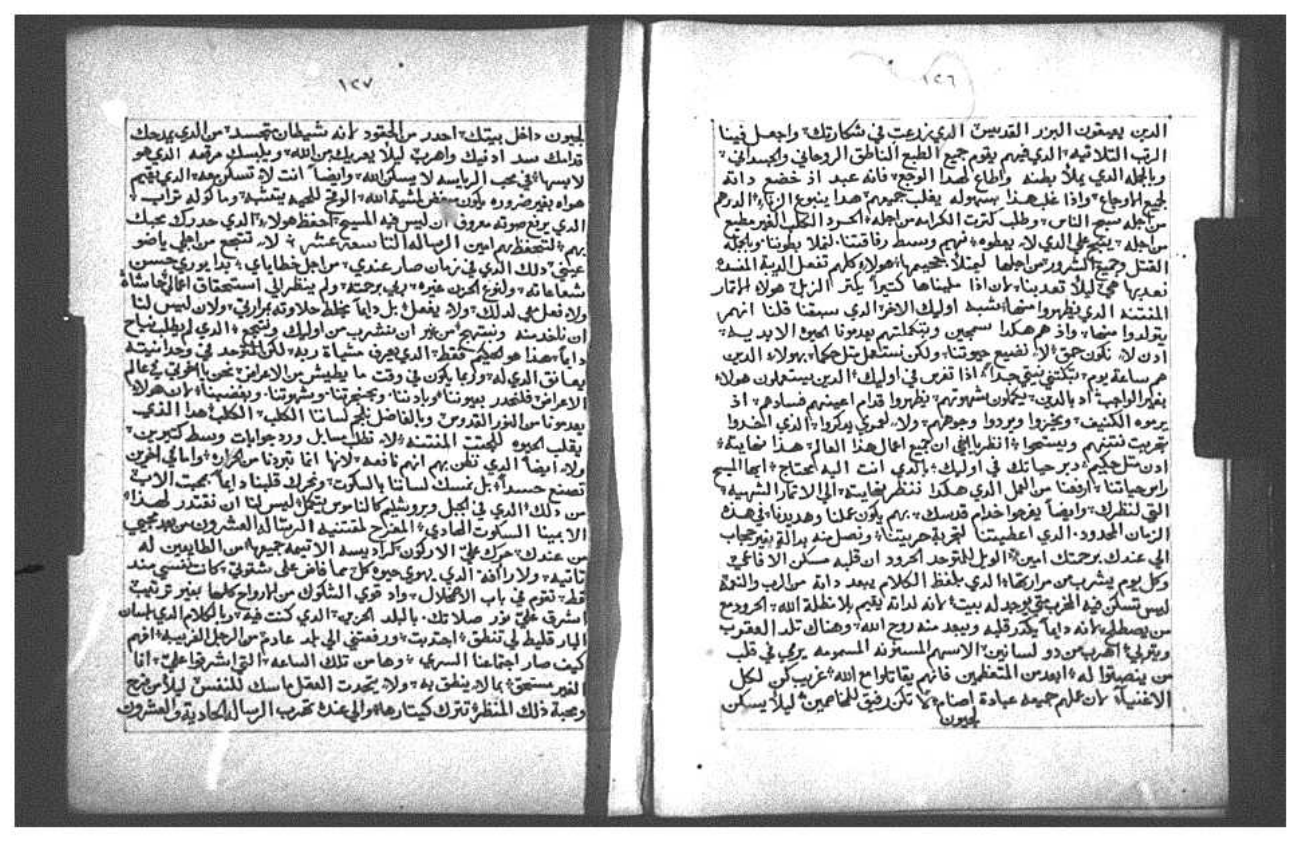 ١٢٦
الدين يعيقون البزر القدسي الدي زرعت في شكارتك واجعل فينا
الرتب التلاتيه الدي فيهم يقوم جميع الطبع الناطق الروحاني والجسداني
وبالجمله الدي يملأ بطنه واطاع لهدا الوجع فانه عبد اذ خضع داته
لجميع الاوجاع واذا غلب هذا بسهوله يغلب جميعهم هدا ينبوع الزناء الدرهم
من اجله سبح الناس وطلب كترت الكرامه من اجله الحسود الكلب الغير مطيع
من اجله ينبح على الدي لا يعطوه فيهم وسط رفاقتنا لنملا بطوننا وبالجمله
القتل وجميع الشرور من اجلها لنمتلأ جميعها هولاء كلهم تفعل الدية المنتنه
نعديها هي ليلا تعدينا لان اذا مليناها كتيرا يكتر الزبل هولاء الاتمار
المنتنه الدي يظهروا منها نشبه اوليك الاخر الدي سبقنا قلنا انهم
يتولدوا منها واذ هم هكدا سمجين وبتكملتهم يعدمونا الحيوه الابديه
ادن لا نكون حمقى لا نضيع حيوتنا ولكن نستعمل بتل حكما بهولاء الدين
هم ساعة يوم تبكتني نيتي جدا اذا تفرس في اوليك الدين يستعملون هولاء
بغير الواجب اد بالدين يكملون شهوتهم يظهروا قدام اعينهم فسادهم اذ
يرموه الكنيف ويخزوا ويردوا وجوههم ولا لعمري يدكروا الدي افسدوا
بتجربت نتنهم ويستحوا انظر يا اخي ان جميع اعمال هذا العالم هدا نهايته
ادن متل حكيم دبر حياتك في اوليك بالدي انت اليه محتاج ايها المسيح
راس حياتنا ارفعنا من العمل الدي هكدا ننظر نهايته الى الاتمار الشهيه
التي لنظرك وايضا يفرحوا خدام قدسك بهم يكون عملنا وهديدنا في هده
الزمان المحدود الدي اعطيتنا لتجربة حريتنا ونصل منه بدالة بغير حجاب
الى عندك برحمتك امين الويل للمتوحد الحرود ان قلبه مسكن الافاعي
وكل يوم يشرب من مرارتهاء الدي بلفظ الكلام يبعد داته من الرب والنوة
ليس تسكن فيه المخرب متي يوجد له بيت لانه لداته يقيم بلا مظلة الله الحرود مع
من يصطلح لانه دايما يكدر قلبه ويبعد منه روح الله وهناك تلد العقرب
ويتربي اهرب من دو لسانين الاسهم المسنونه المسمومه يرمي في قلب
من ينصتوا له ابعد من المتعظمين فانهم يقاتلوا مع الله غريب كن لكل
الاغنياء لان عملهم جميعه عبادة اصنام لا تكن رفيق للمخاصمين ليلا يسكن
لجيون
١٢٧
لجيون داخل بيتك احدر من الحقود لانه شيطان متجسد من الدي يمدحك
قدامك سد ادنيك واهرب ليلا يعريك من الله ويلبسك مرقعه الدي هو
لابسها في محب الرياسه لا يسكن الله وايضا انت لا تسكن معه الدي يقيم
هواه بغير ضروره يكون مبغض لمشية الله الوقح للحيه يتشبه وماكوله تراب
الدي يرفع صوته معروف ان ليس فيه المسيح احفظ هولاء الدي حدرك محبك
بهم لتتحفظ بهم امين الرساله التاسعة عشر لا تنتجع من اجلي ياضو
عيني دلك الدي في زمان صار عندي من اجل خطاياي بدا يوري حسن
شعاعاته ولنوع الحزن غيره ربي برحمته ولم ينظر الى استحقاق اعمالي حاشاه
ولا فعل هي لدلك ولا يفعل بل دايما يخلط حلاوته بمرارتي ولان ليس لنا
ان ناخد منه ونبتهج من غير ان نشرب من اوليك وننتجع الدي لم يطلب نياح
دايما هدا هو الحكيم فقط الدي يعرف مشياة ربه لكن المتوحد في وحدانيته
يعانق الدي له وربما يكون في وقت ما يطيش من الاعراض نحن يا اخوتي في عالم
الاعراض فلنحدر بعيوننا وبادننا وبحنجرتنا وبشهوتنا وبغضبنا لان هولاء
يعدمونا من النور القدوس وبالفاضل نلجم لساننا الكلب الكلب هدا الدي
يقلب الحيوه للجتت المنتنه لا نطلب مسايل ورد جوابات وسط كتيرين
ولا ايضا الدي نظن بهم انهم نافعه لانها انما تبردنا من الحراره وامافي اخرين
تصنع حسدا بل نمسك لساننا بالسكوت ونحرك قلبنا دايما بمحبت الاب
من دلك الدي في الجبل وبروشليم كالناموس يتكمل ليس لنا ان نقتدر لهدا
الا بمينا السكوت الهادي المفرح لمقتنيه الرساله العشرون من بعد مجيي
من عندك حرك علي الاركون كراديسه الاتيمه جميعها من الطايعين له
تاتيه ولا رافه الدي يهوي حيوه كل مما فاض على شقوتي كانت نفسي منه
قط تقوم في باب الاضمحلال واد قوي الشكوك من الارواح كلها بغير ترتيب
اشرق علي نور صلاتك بالبلد الحزين الدي كنت فيه ربا الكلام الدي بلسان
البار قليط لي تنطق اجتدبت ورفعتني الى بلد عادم من الرجل الغريبه افهم
كيف صار اجتماعنا السري وها من تلك الساعه التي اشرقوا علي انا
الغير مستحق بما لا ينطق به ولا يتحدت العقل ماسك للنفس ليلا من فرح
ومحبة ذلك المنظر تترك كيتارها والى عنده تهرب الرساله الحادية والعشرون